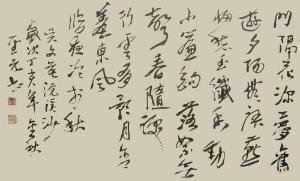 門隔花深夢舊
遊夕陽無語燕
歸愁玉纖香動
小簾鉤落絮無
聲春墮淚
行雲有影月含
羞東風
臨夜冷於秋
吳文英浣溪沙
歲次丁亥年金秋